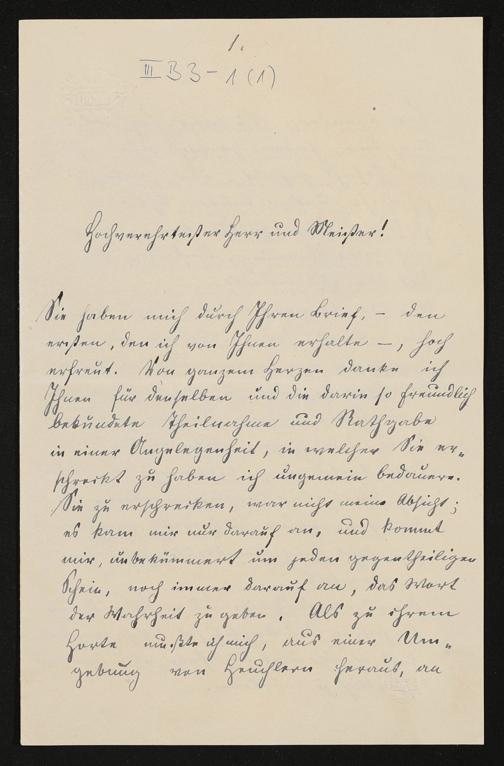 1.
III B 3 - 1 (1)
Hochverehrtester Herr und Meister!
Sie haben mich durch Ihren Brief, – den
ersten, den ich von Ihnen erhalte –, hoch
erfreut. Von ganzem Herzen danke ich
Ihnen für denselben und die darin so freundlich
bekundete Theilnahme und Rathgabe
in einer Angelegenheit, in welcher Sie er=
schreckt zu haben ich ungemein bedauere.
Sie zu erschrecken, war nicht meine Absicht;
es kam mir nur darauf an, und kommt
mir, unbekümmert um jeden gegentheiligen
Schein, noch immer darauf an, das Wort
der Wahrheit zu geben. Als zu ihrem
Horte mußte ich mich, aus einer Um=
gebung von Heuchlern heraus, an